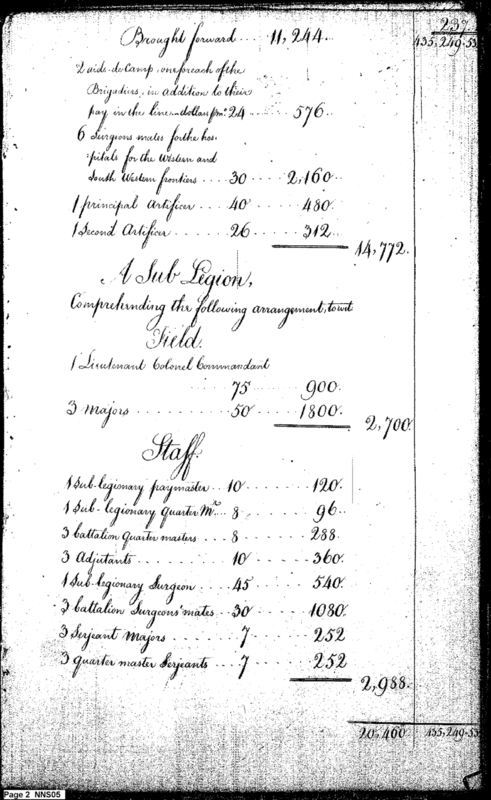 237
Brought forward 11,244 135,249.53
2 aids-de Camp, one for each of the
Brigadiers, in addition to their
pay in the line — dollars pm. 24 576
6 Surgeons mates for the hos-
pitals for the Western and
South Western frontiers 30 2,160
1 principal Artificer 40 480
1 Second Artificer 26 312
14,772.
A Sub Legion,
Comprehending the following arrangement, to wit
Field.
1 Lieutenant Colonel Commandant
75 900.
3 Majors 50 1800.
2,700
Staff.
1 Sub-legionary paymaster 10 120.
1 Sub-legionary Quarter Mr 8 96.
3 battalion Quarter masters 8 288
3 Adjutants 10 360.
1 Sub-legionary Surgeon 45 540.
3 battalion Surgeons' mates 30 1080.
3 Serjeant Majors 7 252
3 quarter master Serjeants 7 252
2,988.
20,460 135,249.53
Page 2 NNS05